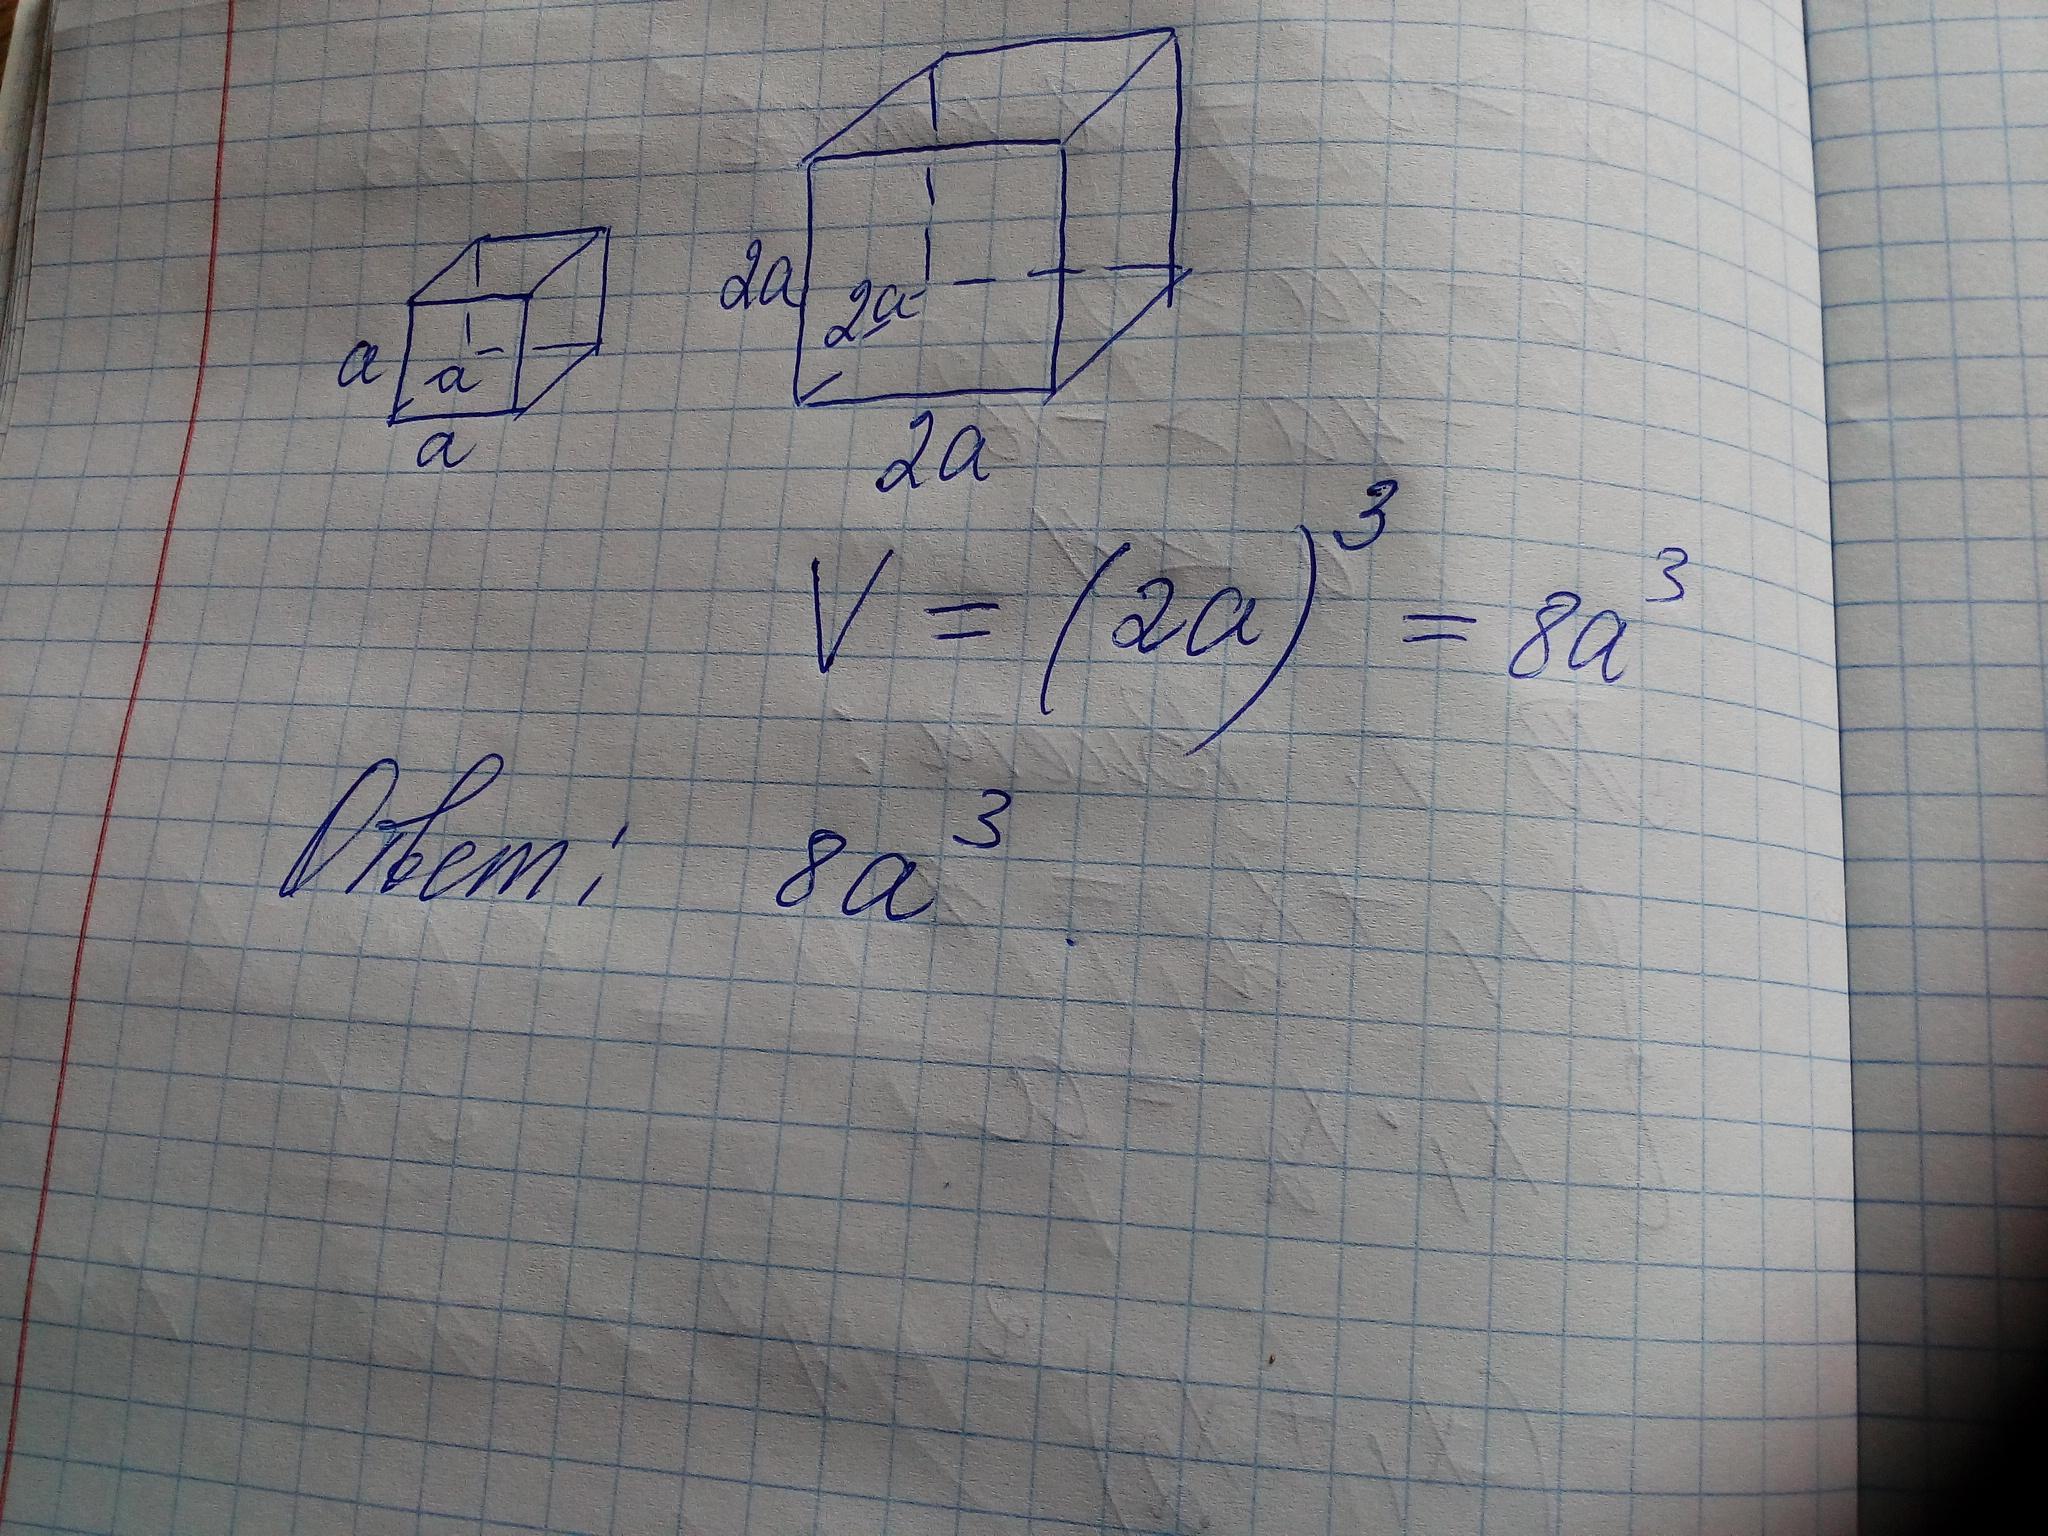 a a a
2a 2a 2a
V = (2a)³ = 8a³
Ответ: 8a³.